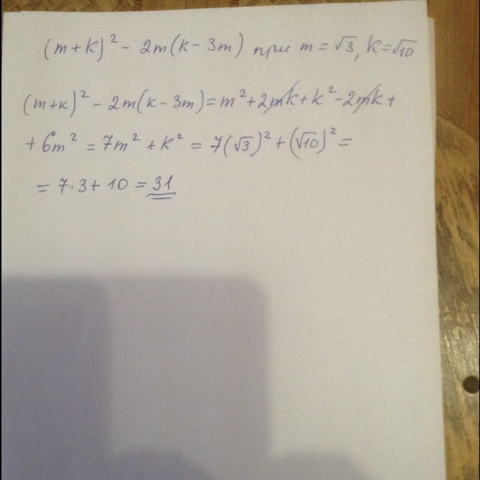 (m+k)² - 2m(k-3m) при m=√3, k=√10
(m+k)² - 2m(k-3m) = m² + 2mk + k² - 2mk +
+ 6m² = 7m² + k² = 7(√3)² + (√10)² =
= 7·3 + 10 = 31